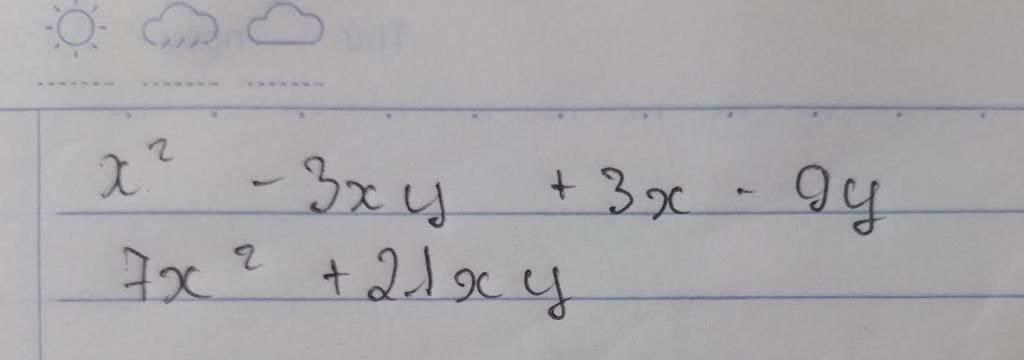 Thứ
x² - 3xy + 3x - 9y
7x² + 21xy